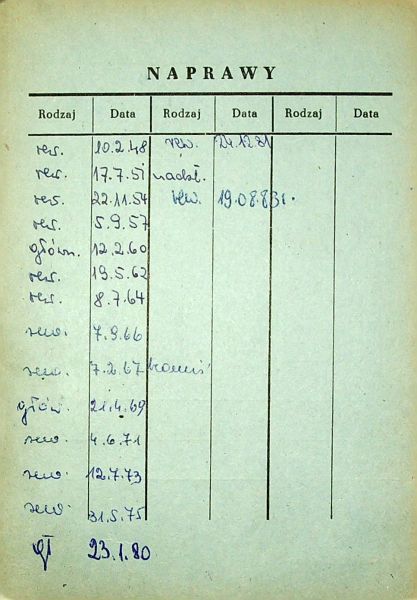 NAPRAWY
Rodzaj Data Rodzaj Data Rodzaj Data
rew. 10.2.48 rew. 24.12.81
rew. 17.7.51 nadzł.
rew. 22.11.54 rew. 19.08.83r.
rew. 5.9.57
główn. 12.2.60
rew. 19.5.62
rew. 8.7.64
rew. 7.9.66
rew. 7.2.67
głów. 21.4.69
rew. 4.6.71
rew. 12.7.73
rew. 31.5.75
gł 23.1.80